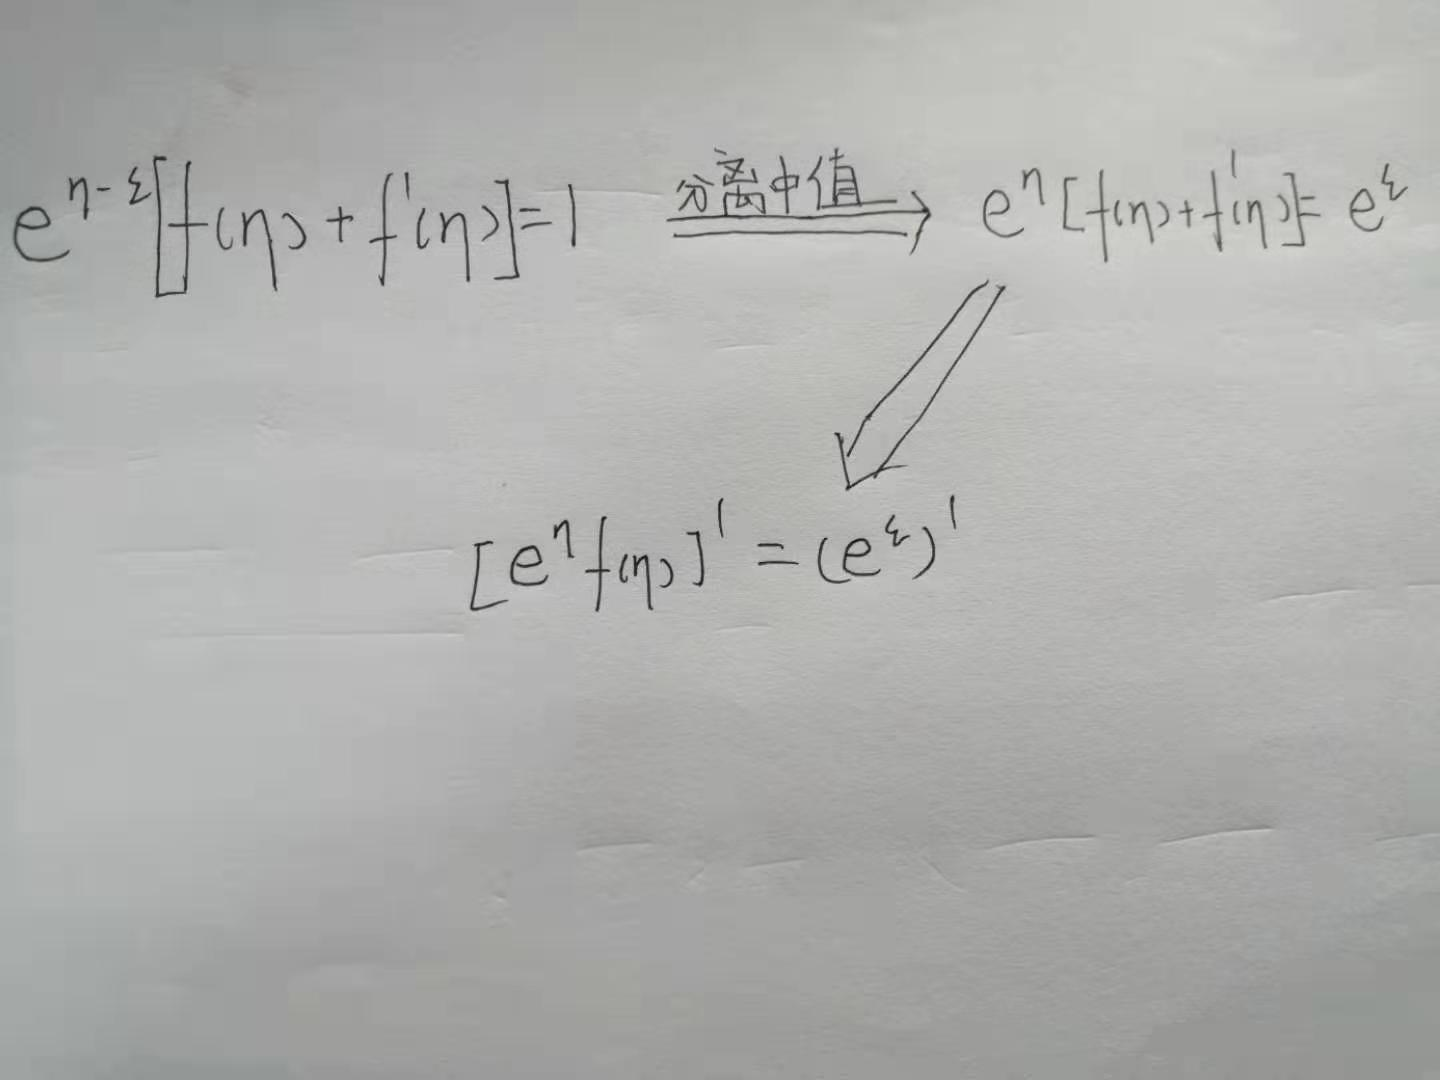 e^{η-ξ}[f(η)+f'(η)]=1 分离中值 e^η[f(η)+f'(η)]=e^ξ
[e^η f(η)]'=(e^ξ)'